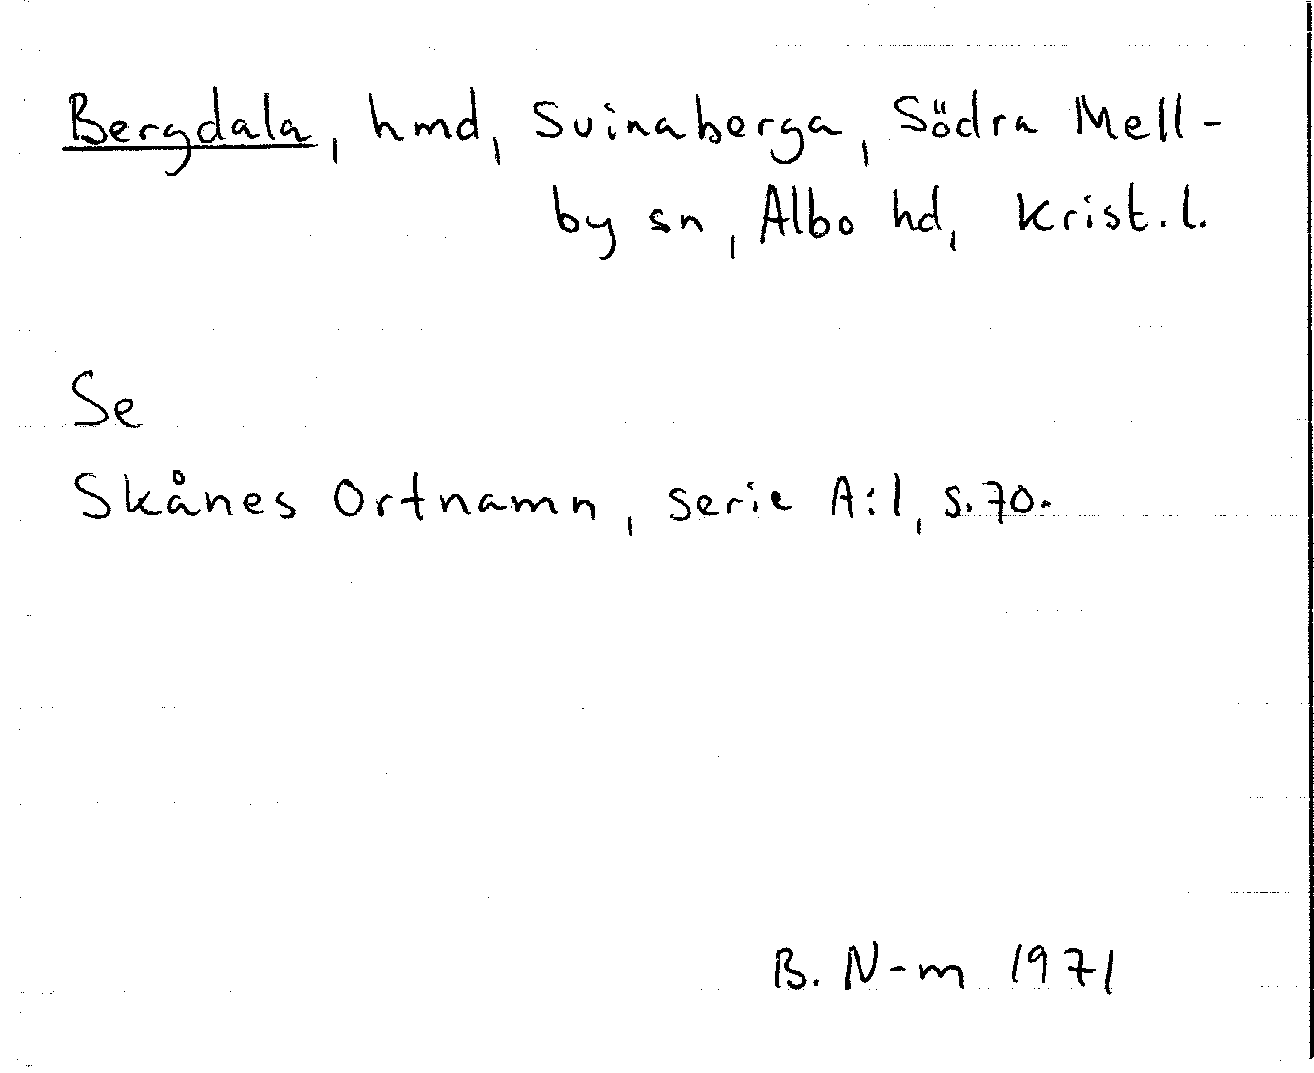 Bergdala, hmd, Svinaberga, Södra Mell-
by sn, Albo hd, Krist.l.
Se
Skånes Ortnamn, serie A:1, s.70.
B. N-m 1971